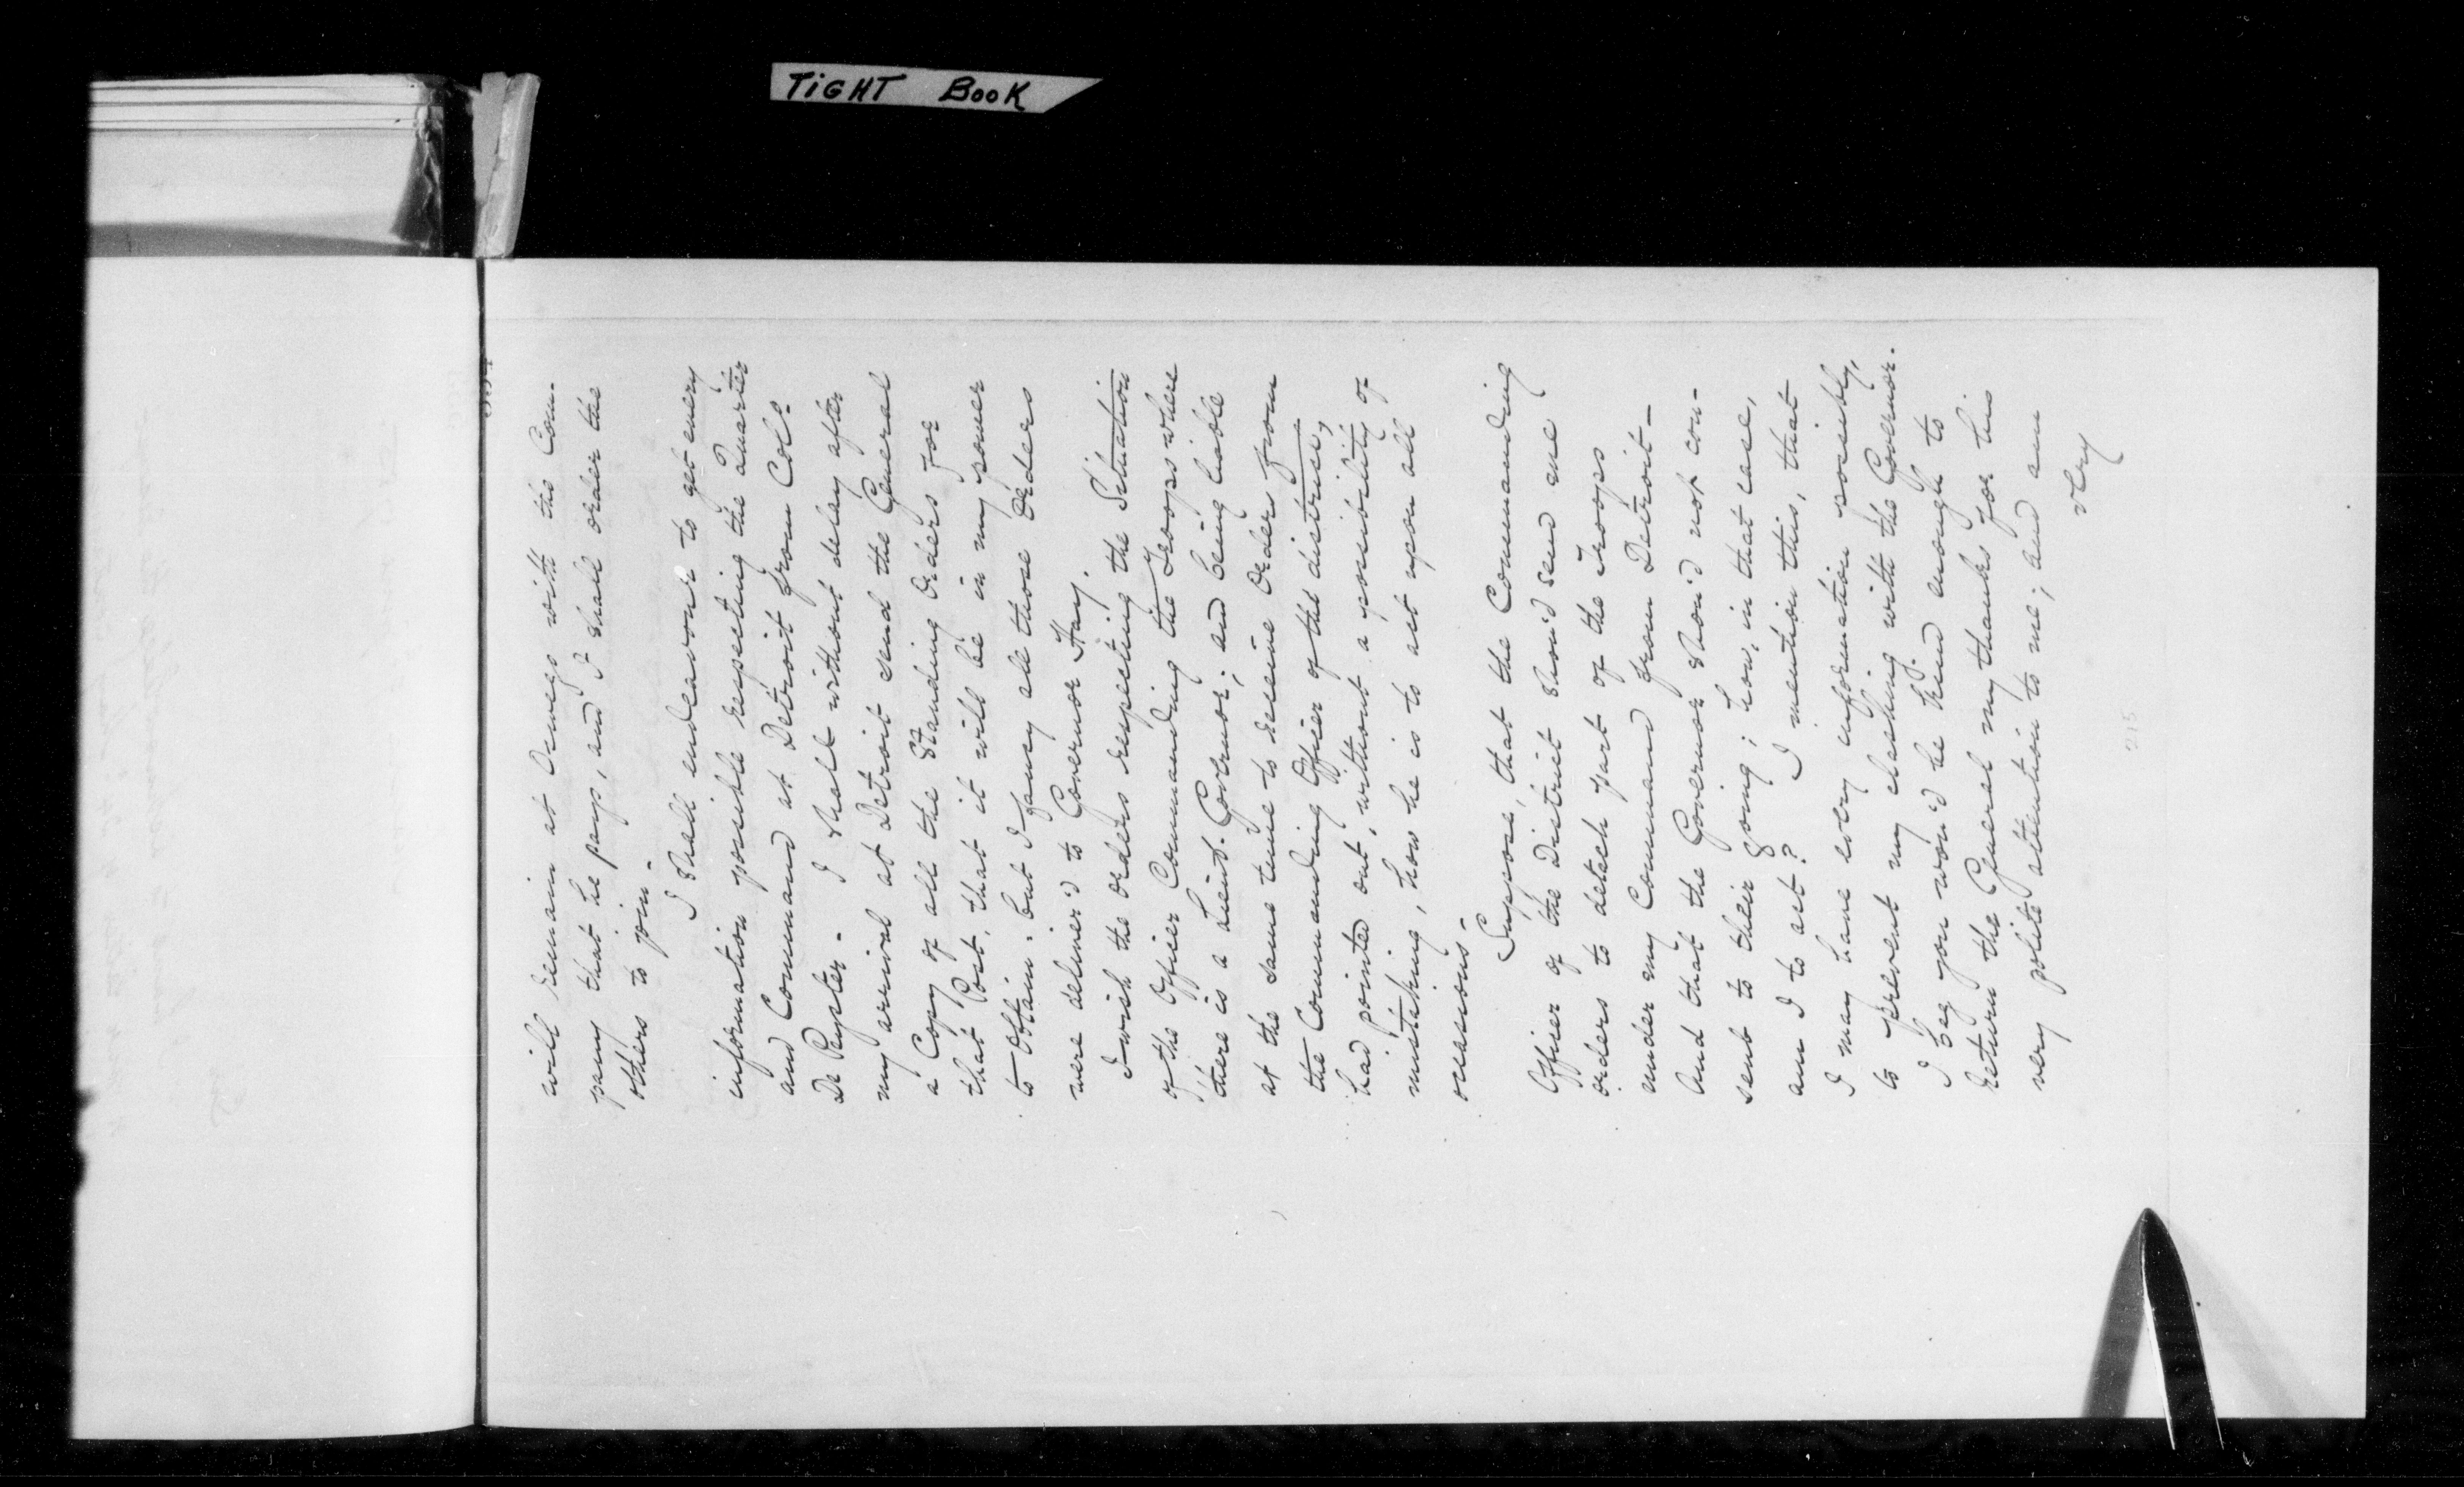 TIGHT BOOK
will remain at Oswego with the Com-
pany that he pays, and I shall order the
others to join -
I shall endeavour to get every
information possible respecting the Quarter
and Command at Detroit from Col:
De Peyster - I shall without delay after
my arrival at Detroit send the General
a Copy of all the Standing Orders for
that Post, that it will be in my power
to Obtain. but I fancy all those Orders
were deliver'd to Governor Hay.
I wish the orders respecting the Situation
of the Officer Commanding the Troops where
there is a Lieut. Governor; and being liable
at the same time to receive Orders from
the Commanding Officer of the district,
had pointed out, without a possibility of
mistaking, how he is to act upon all
occasions -
Suppose, that the Commanding
Officer of the District shou'd send me
orders to detach part of the Troops
under my Command from Detroit -
And that the Governor shou'd not con-
sent to their going; how, in that case,
am I to act? I mention this, that
I may have every information possibly,
to prevent my clashing with the Governor.
I beg you wou'd be kind enough to
return the General my thanks for his
very polite attention to me; and am
very
215